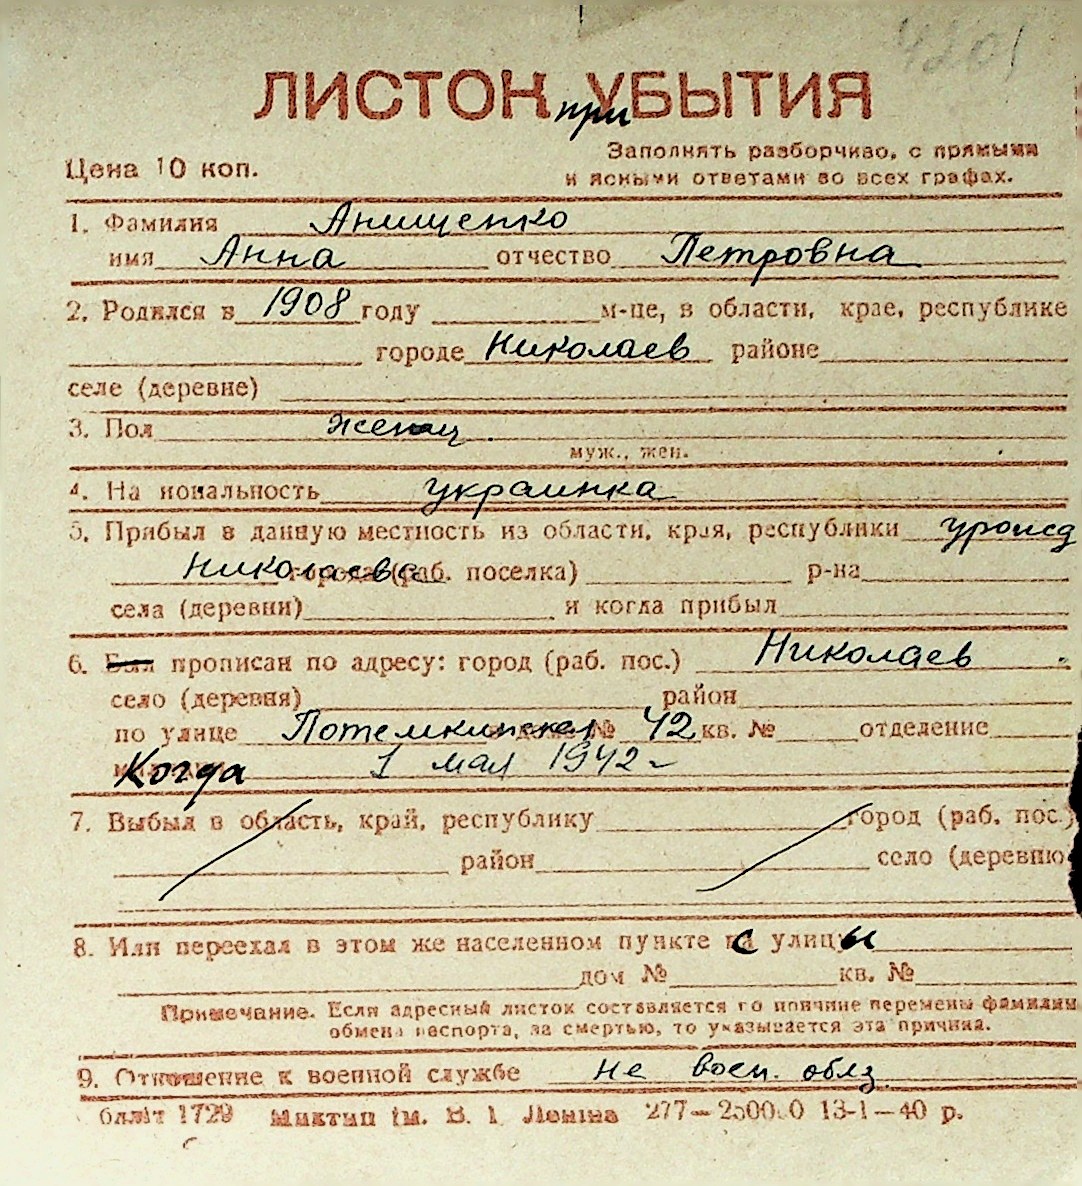 4201
ЛИСТОК УБЫТИЯ
при
Цена 10 коп.
Заполнять разборчиво, с прямыми
и ясными ответами во всех графах.
1. Фамилия Анищенко
имя Анна отчество Петровна
2. Родился в 1908 году м-це, в области, крае, республике
городе Николаев районе
селе (деревне)
3. Пол женщ.
муж., жен.
4. На иональность украинка
5. Прибыл в данную местность из области, края, республики уроисд
Николаева города (раб. поселка) р-на
села (деревни) и когда прибыл
6. Был прописан по адресу: город (раб. пос.) Николаев
село (деревня) район
по улице Потемкинская № 42 кв. № отделение
Когда 1 мая 1942 г
7. Выбыл в область, край, республику город (раб. пос.)
район село (деревню
8. Или переехал в этом же населенном пункте с улицы
дом № кв. №
Примечание. Если адресный листок составляется по причине перемены фамилии
обмена паспорта, за смертью, то указывается эта причина.
9. Отношение к военной службе не воен. обяз.
1729 Миктип ім. В. І. Леніна 277— 13-1—40 р.